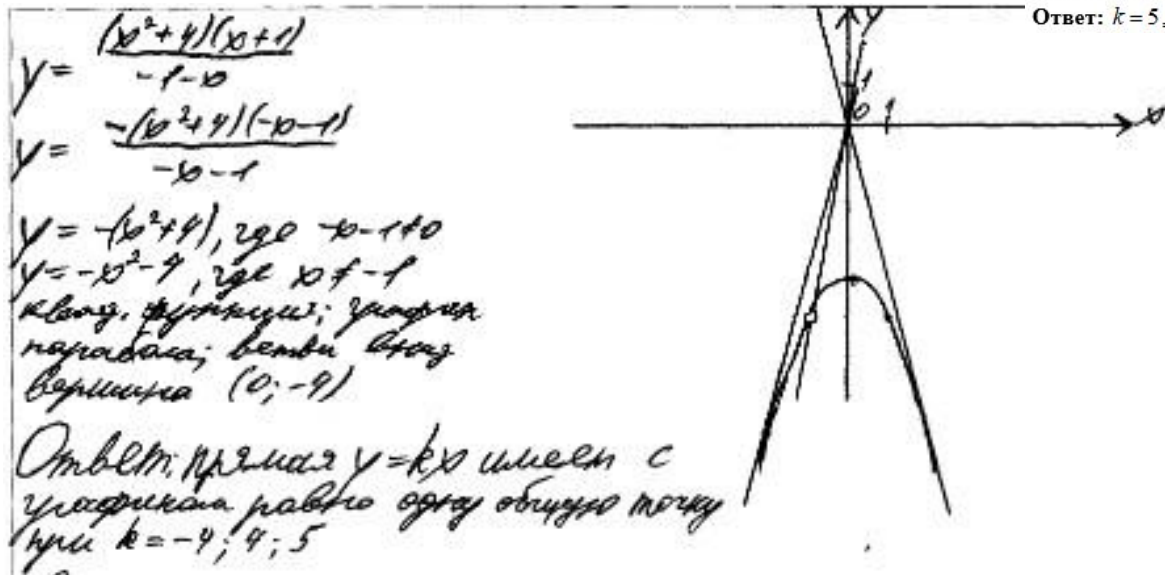 Ответ: k = 5,
y = (x²+4)(x+1) / -1-x
y = -(x²+4)(-x-1) / -x-1
y = -(x²+4), где -x-1≠0
y = -x²-4, где x≠-1
квад. функция; график
парабола; ветви вниз
вершина (0; -4)
Ответ: прямая y=kx имеет с
графиком равно одну общую точку
при k = -4; 4; 5
y
1
0 1 x